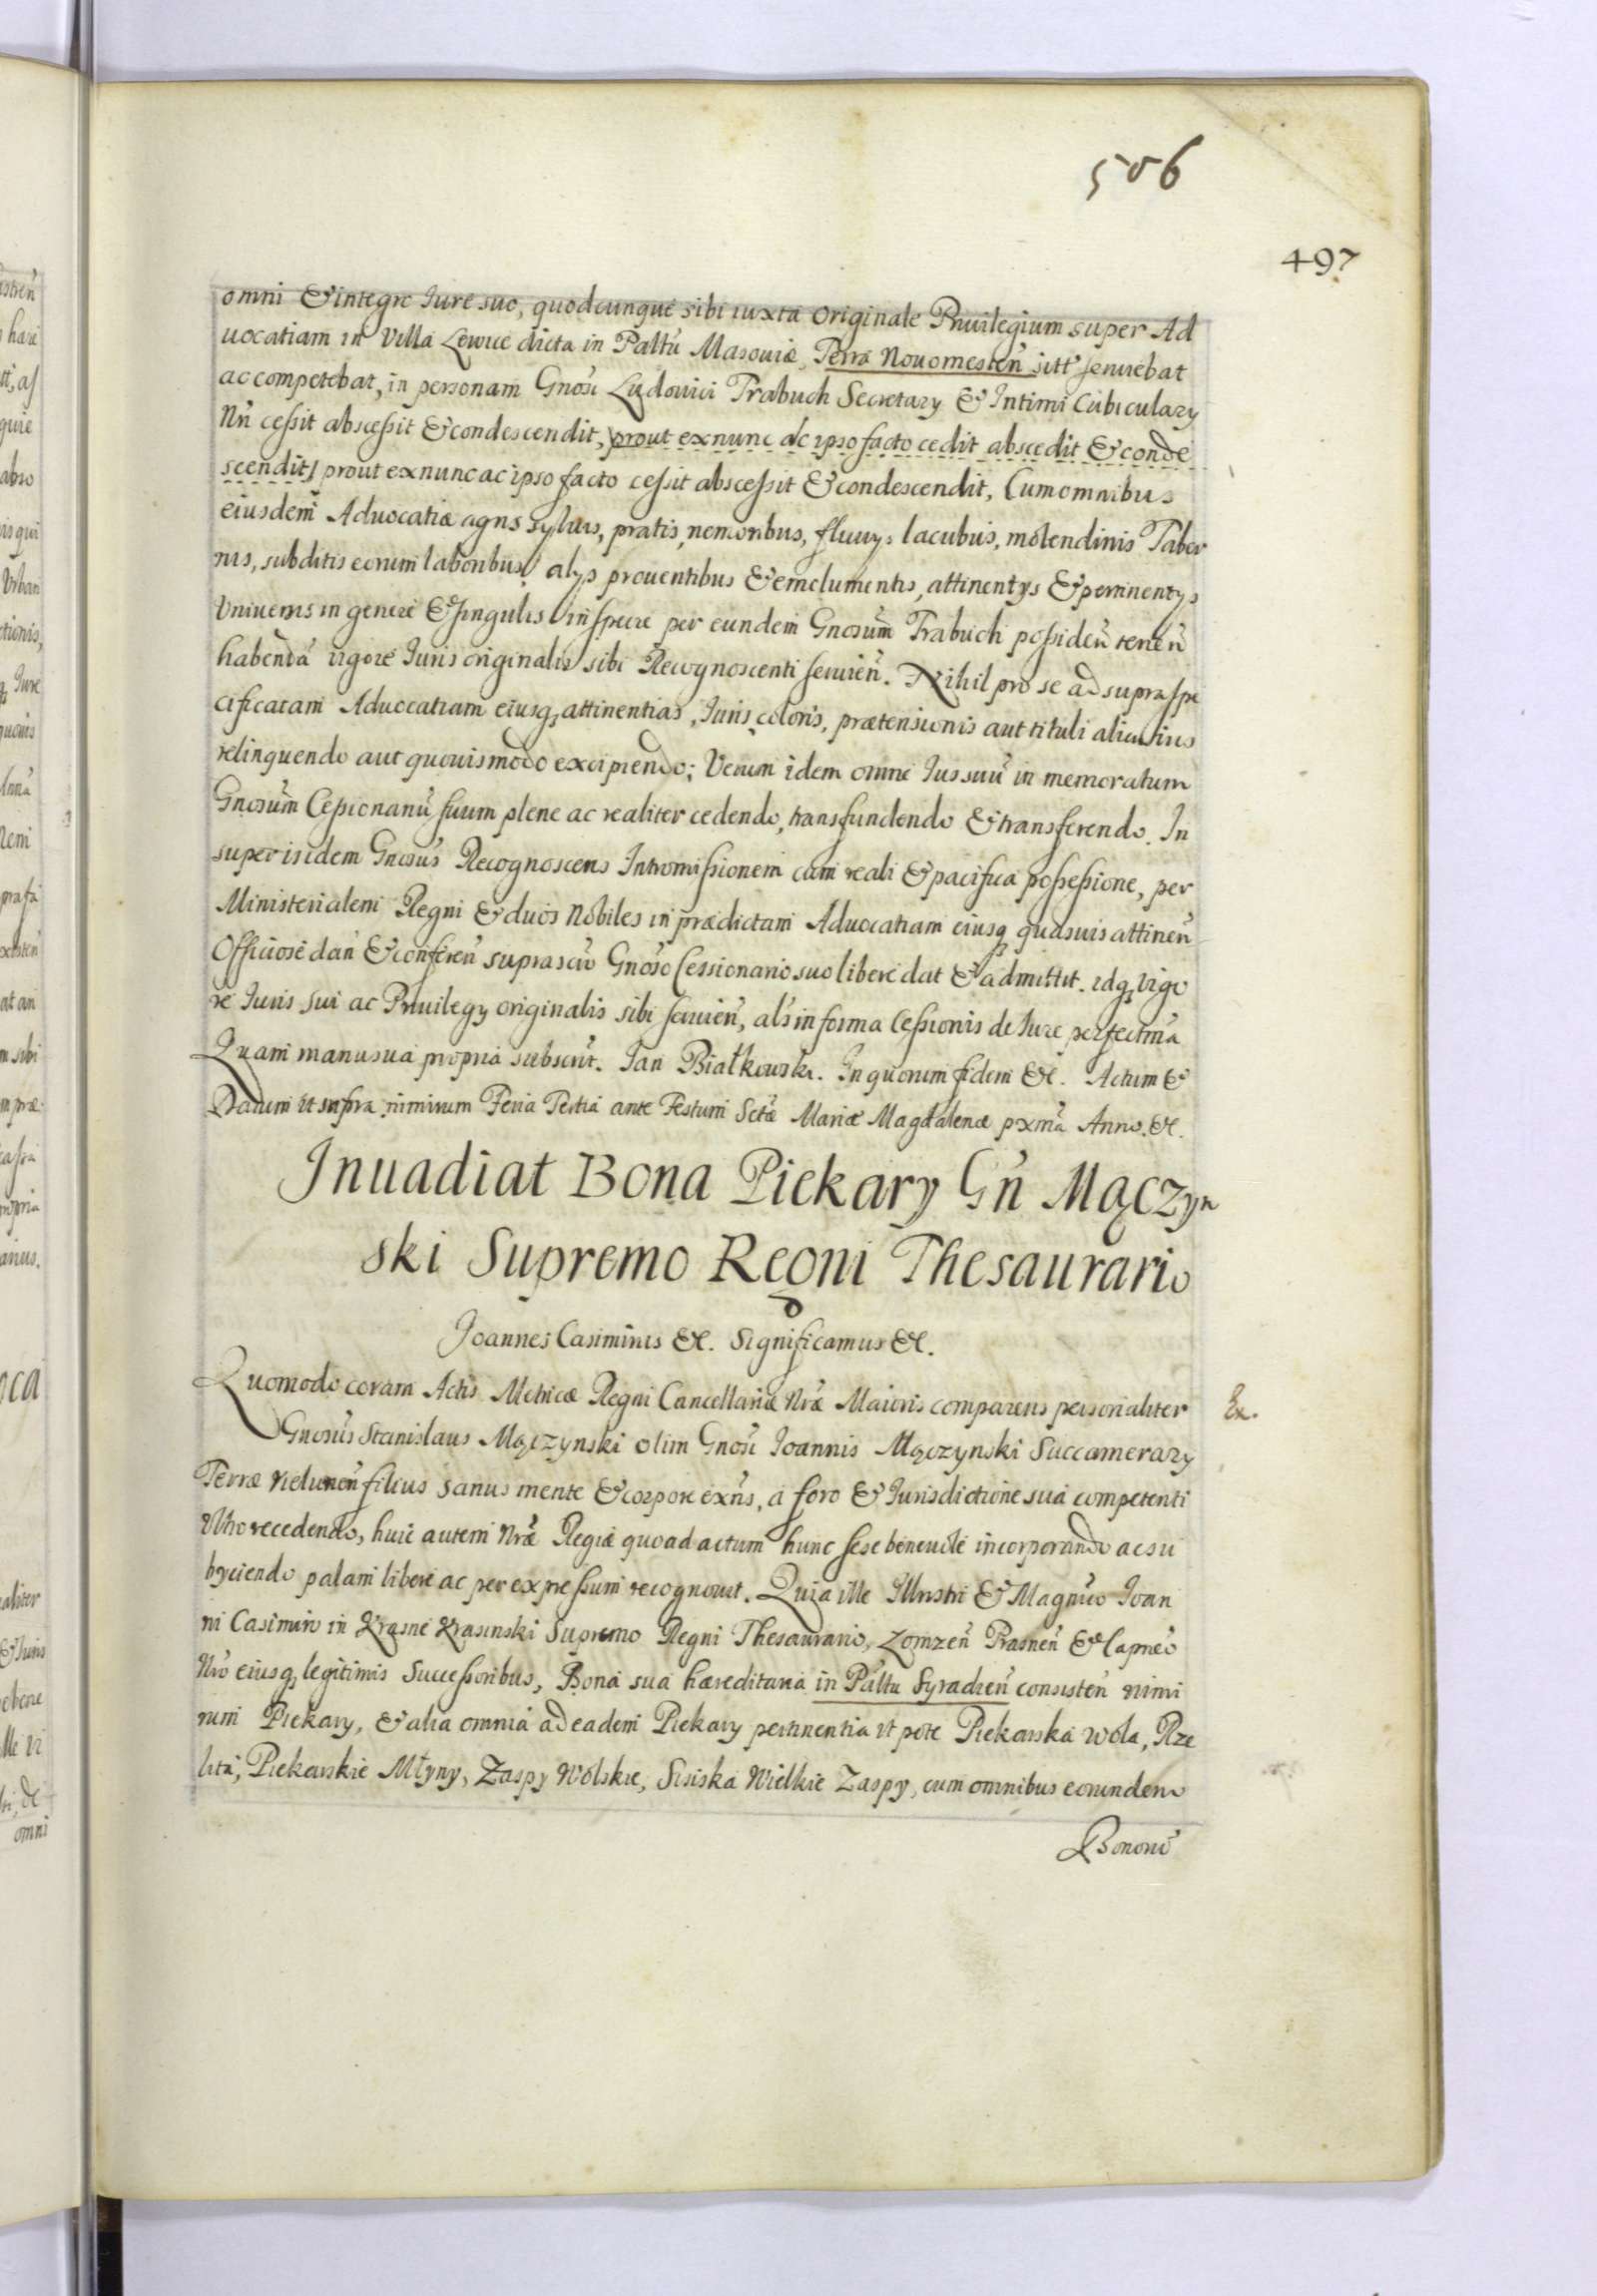 506
497
omni & integro Iure suo, quodcunque sibi iuxta originale Priuilegium super Ad
uocatiam in Villa Lewice dicta in Palttu Masouiæ, Terra Nouomesteñ sitt seruiebat
ac competebat, in personam Gnosi Ludouici Trabuch Secretarij & Intimi Cubicularij
Nri cessit abscessit & condescendit, prout ex nunc ac ipso facto cedit abscedit & conde
scendit/ prout ex nunc ac ipso facto cessit abscessit & condescendit, Cum omnibus
eiusdem Aduocatiæ agris syluis, pratis, nemoribus, fluuijs lacubus, molendinis Taber
nis, subditis eorum laboribus, alijs prouentibus & emolumentis, attinentijs & pertinentijs
Vniuersis in genere & singulis in specie per eundem Gnosum Trabuch possideñ teneñ
habenda vigore Iuris originalis sibi Recognoscenti seruieñ. Nihil pro se ad supraspe
cificatam Aduocatiam eiusq attinentias, Iuris coloris, prætensionis aut tituli alicuius
relinquendo aut quouismodo excipiendo; Verum idem omne Ius suũ in memoratum
Gnosum Cessionariũ suum plene ac realiter cedendo, transfundendo & transferendo. In
super isidem Gnosus Recognoscens Intromissionem cum reali & pacifica possessione, per
Ministerialem Regni & duos Nobiles in prædictam Aduocatiam eiusq quasuis attineñ
Officiose dañ & conferen suprascto Gnoso Cessionario suo libere dat & admittit. idq vigo
re Iuris sui ac Priuilegij originalis sibi seruieñ, als in forma Cessionis de Iure perfectma
Quam manu sua propria subscrit. Ian Białkowski. In quorum fidem &c. Actum &
Datum vt supra nimirum Feria Tertia ante Festum Sctæ Mariæ Magdalenæ pxma Anno. &c.
Inuadiat Bona Piekary Gñ Mączyn
ski Supremo Regni Thesaurario
Joannes Casimirus &c. Significamus &c.
Quomodo coram Actis Metricæ Regni Cancellariæ Nræ Maioris comparens personaliter
Ex.
Gnosus Stanislaus Mączynski olim Gnosi Ioannis Mączynski Succamerarij
Terræ Vieluneñ filius sanus mente & corpore exñs, a foro & Iurisdictione sua competenti
Vltro recedendo, huic autem Nræ Regiæ quoad actum hunc sese beneuole incorporando ac su
bijciendo palam libere ac per expressum recognouit. Quia ille Illustri & Magnĩco Ioan
ni Casimiro in Krasne Krasinski Supremo Regni Thesaurario, Zomzeñ Prasneñ & Capneo
Nro eiusq legitimis Successoribus, Bona sua hæreditaria in Palttu Syradieñ consisteñ nimi
rum Piekary, & alia omnia ad eadem Piekary pertinentia vt pote Piekarska Wola, Rze
lita, Piekarskie Młyny, Zaspy Wolskie, Sisiska Wielkie Zaspy, cum omnibus eorundem
Bonorũ